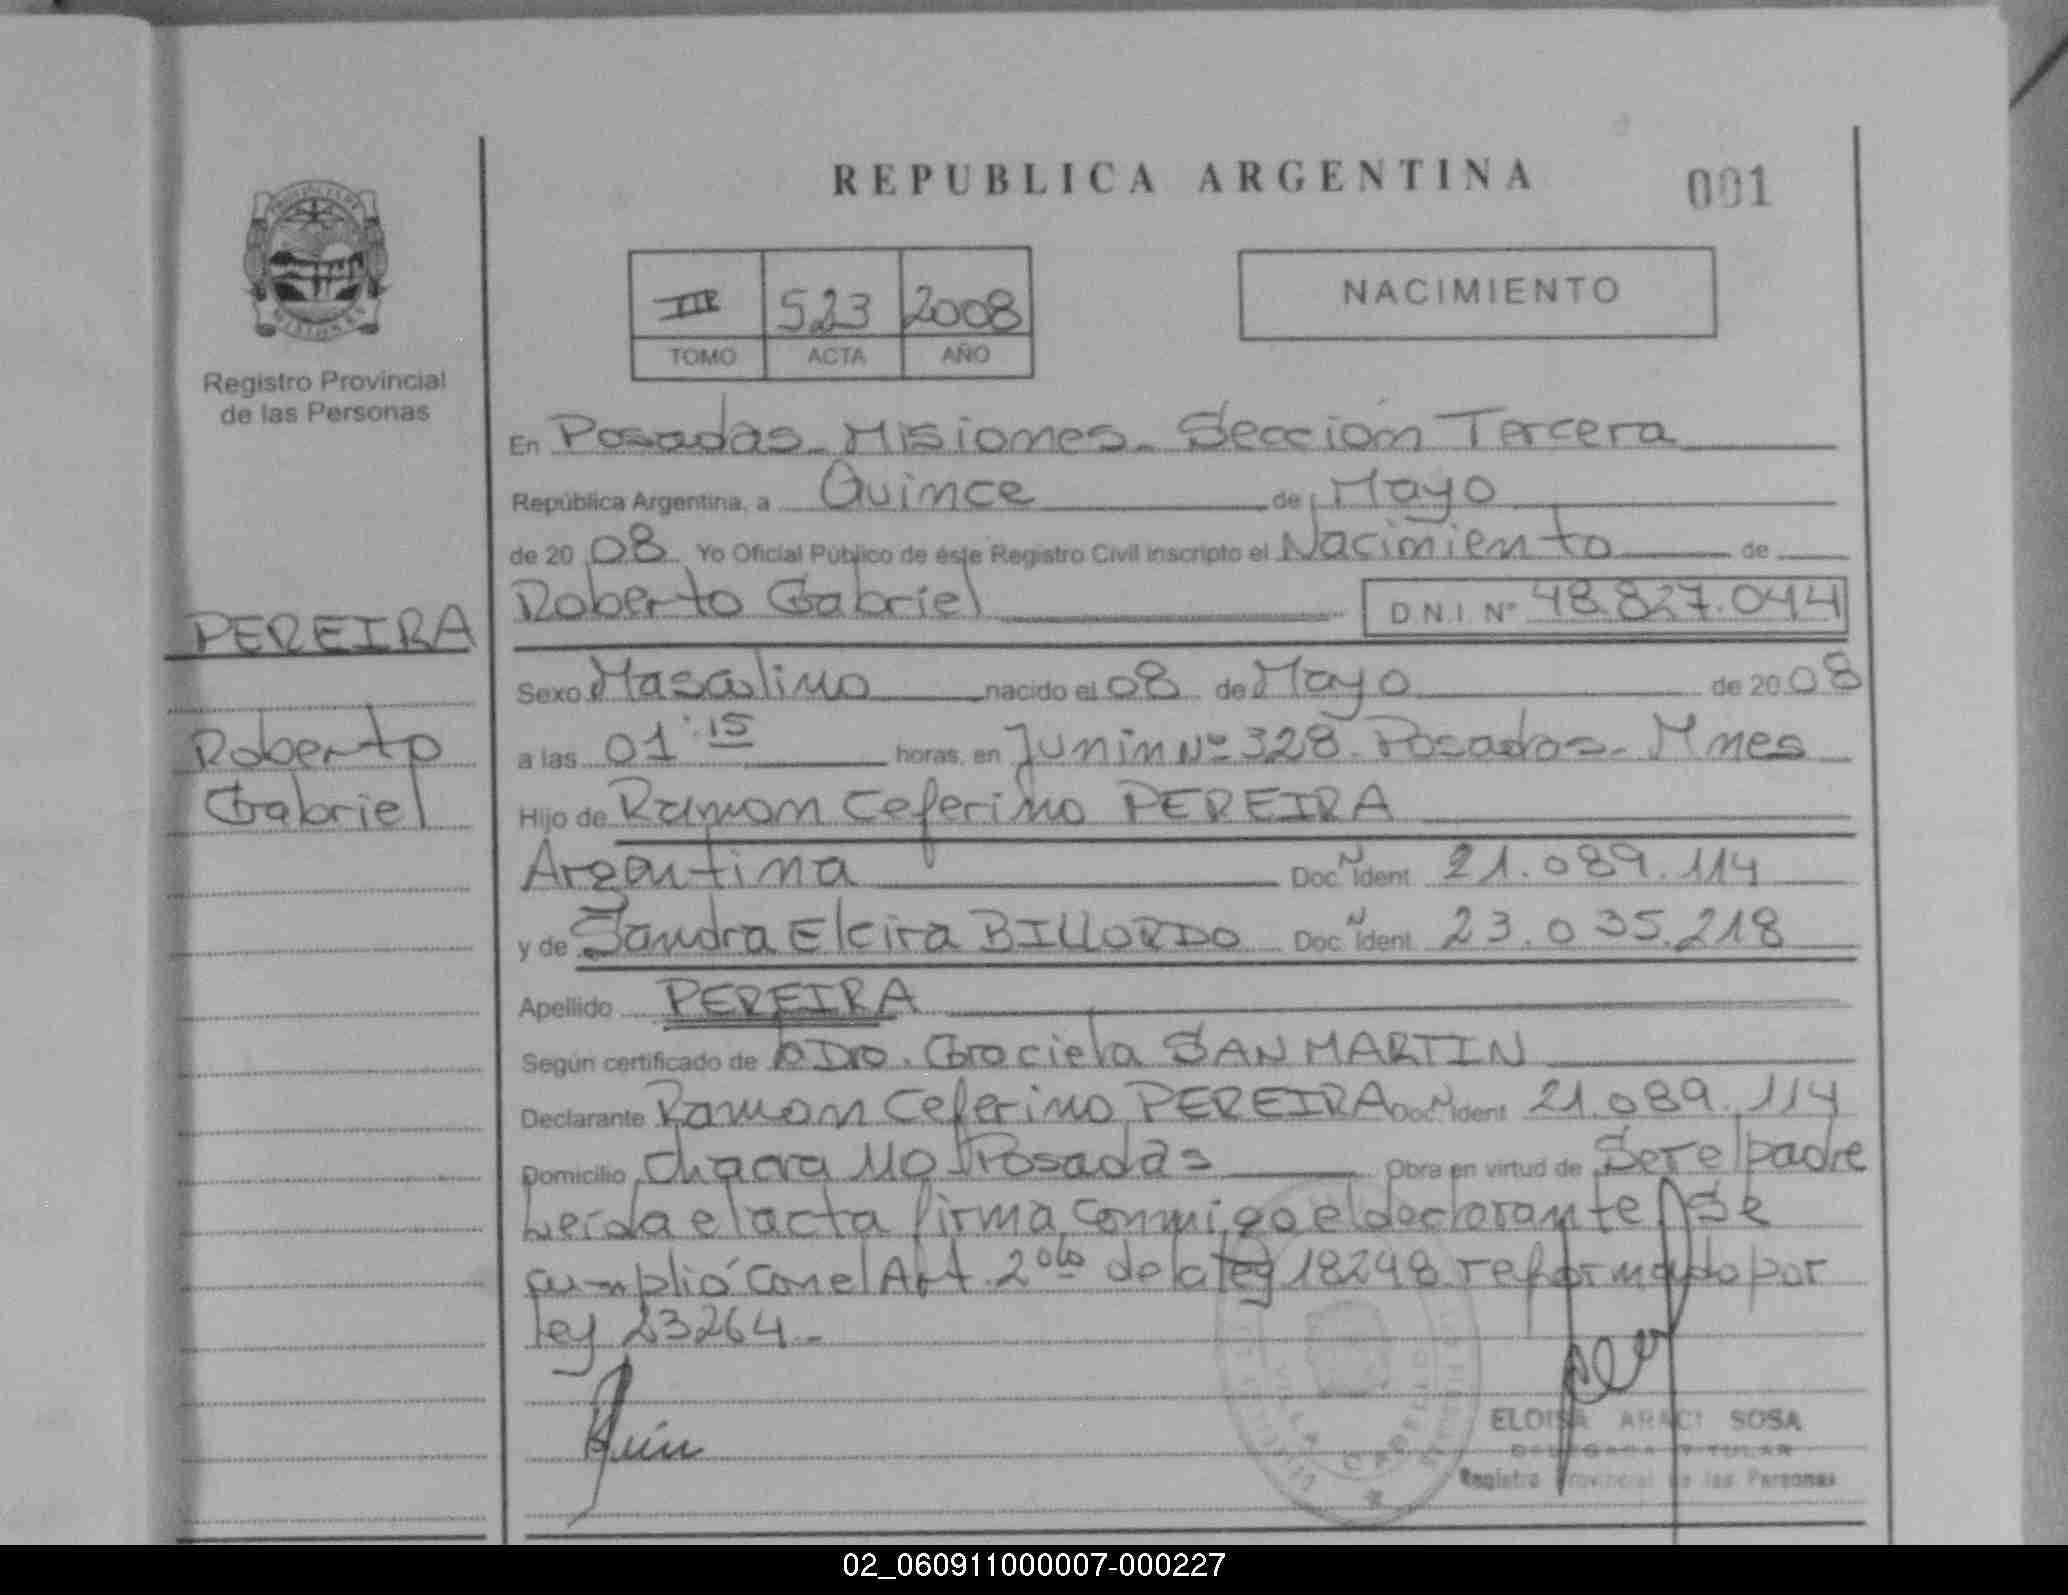 REPUBLICA ARGENTINA
001
PROVINCIA DE
MISIONES
Registro Provincial
de las Personas
III 523 2008
TOMO ACTA AÑO
NACIMIENTO
En Posadas - Misiones - Sección Tercera
República Argentina, a Quince de Mayo
de 2008 Yo Oficial Público de éste Registro Civil inscripto el Nacimiento de
Roberto Gabriel D.N.I. Nº 48.827.044
PEREIRA
Roberto
Gabriel
Sexo Masculino nacido el 08 de Mayo de 2008
a las 01:15 horas, en Junin Nº 328 - Posadas - Mnes
Hijo de Ramon Ceferino PEREIRA
Argentina Doc. N Ident 21.089.114
y de Sandra Elcira BILLORDO Doc. N Ident 23.035.218
Apellido PEREIRA
Según certificado de la Dra. Graciela SAN MARTIN
Declarante Ramon Ceferino PEREIRA Doc. N Ident 21.089.114
Domicilio Chacra 110 Posadas Obra en virtud de Ser el padre
Leída el acta firma conmigo el declarante Se
cumplió con el Art. 2do de la ley 18248 reformado por
ley 23264.-
ELOISA ARACI SOSA
DELEGADA TITULAR
Registro Provincial de las Personas
VILLA CABELLO
02_060911000007-000227